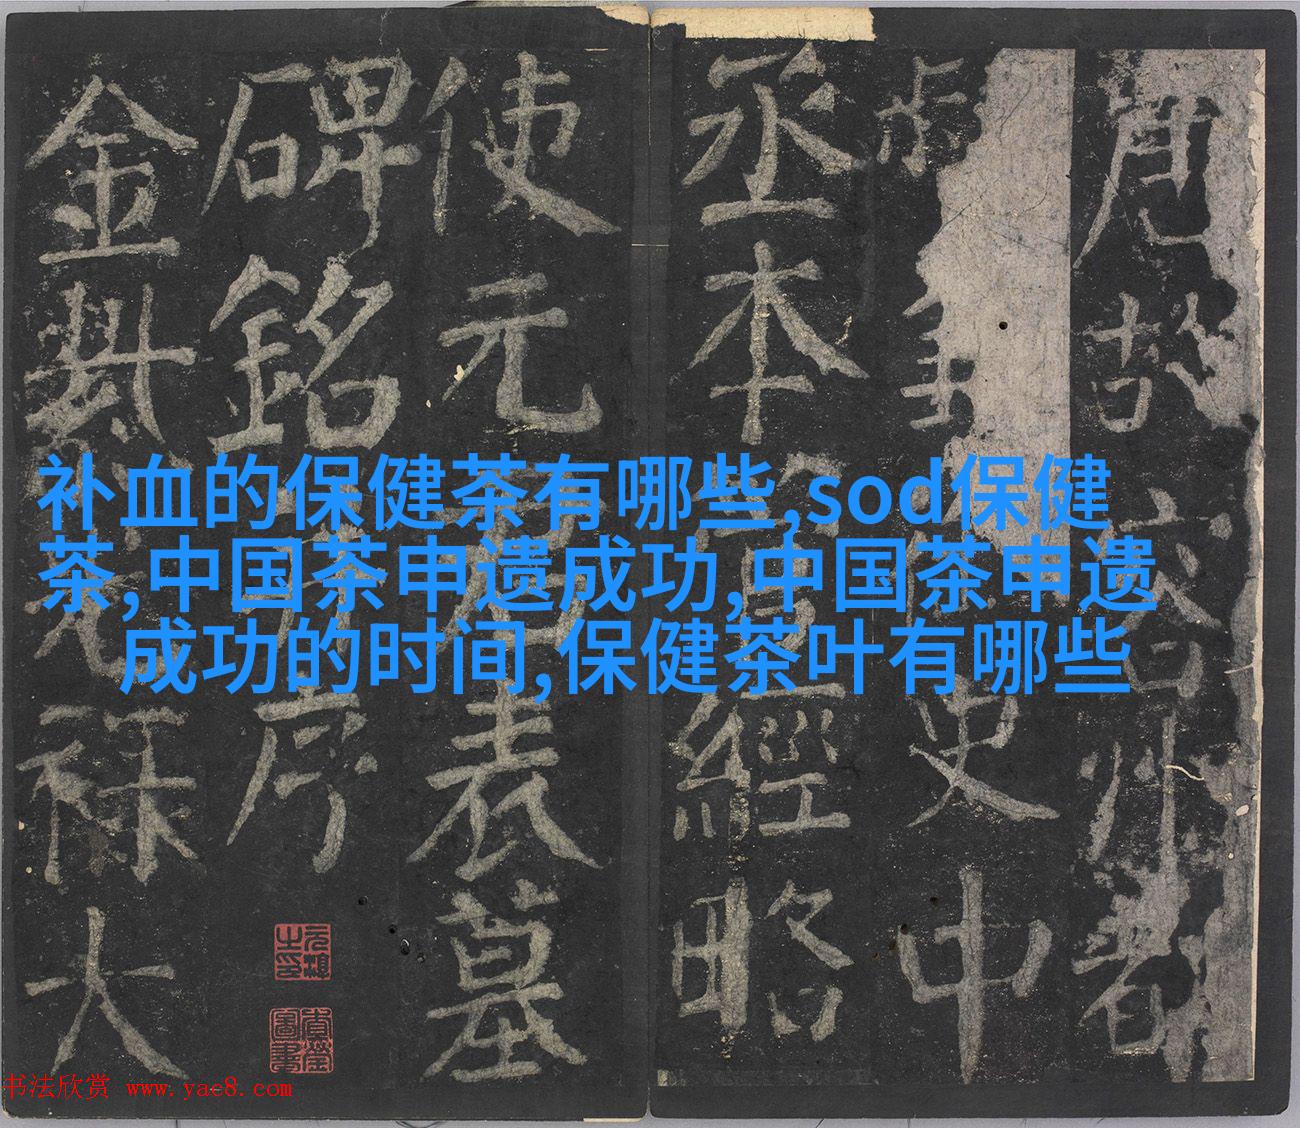 补血的保健茶有哪些,sod保健
茶,中国茶申遗成功,中国茶申遗
成功的时间,保健茶叶有哪些
唐故容州都
史中
丞本管經略
使元君表墓
碑銘并序
金紫光禄大
书法欣赏 www.yac8.com